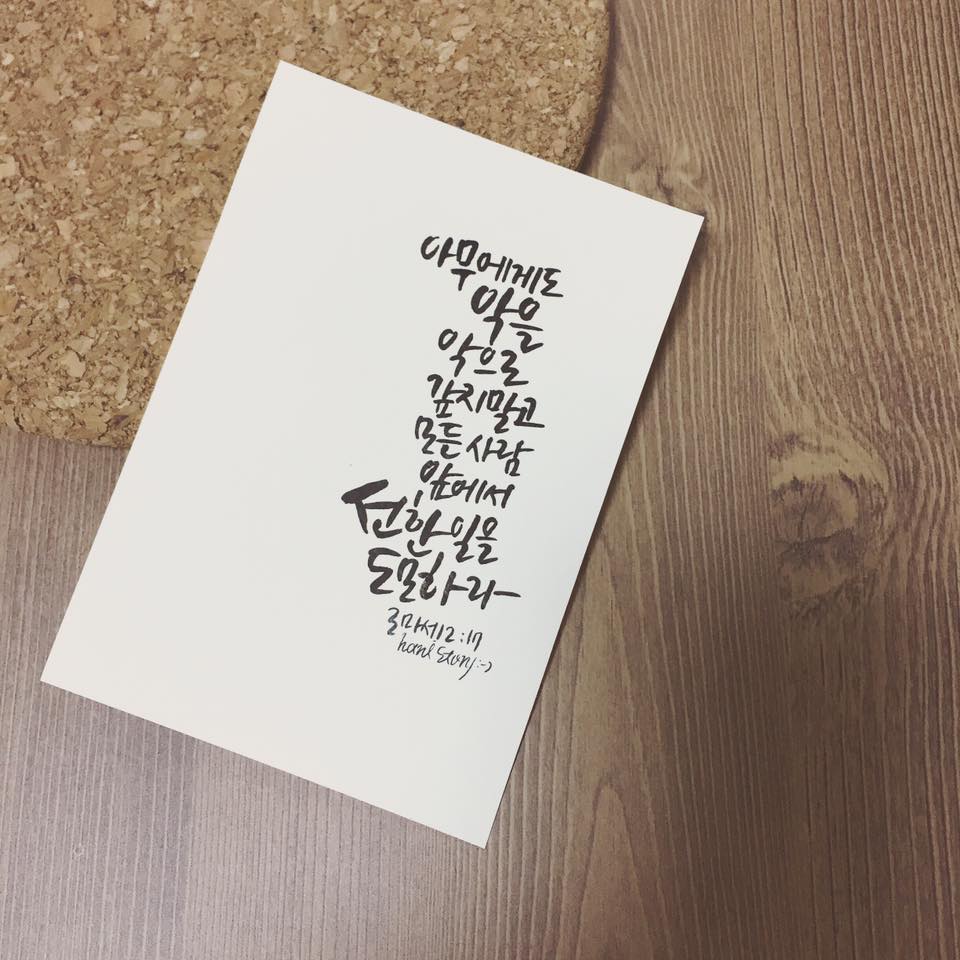 아무에게도
악을
악으로
갚지말고
모든 사람
앞에서
선한 일을
도모하라
로마서12:17
story:-)